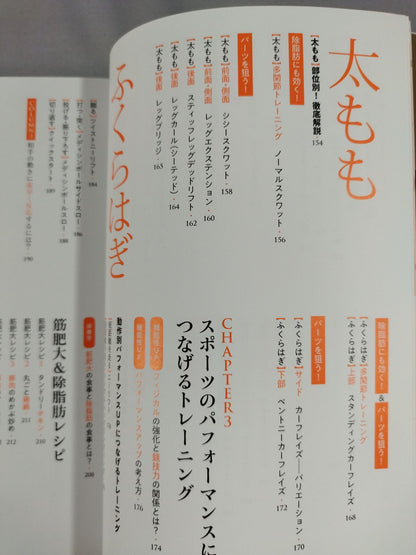 太もも
【太もも】部位別!徹底解説
154
除脂肪にも効く!
【太もも】多関節トレーニング ノーマルスクワット・156
パーツを狙う!
【太もも】前面・側面 シシースクワット・158
【太もも】前面・側面 レッグエクステンション・160
【太もも】後面 スティッフレッグデッドリフト・162
【太もも】後面 レッグカール(シーテッド)・164
【太もも】後面 レッグブリッジ・165
ふくらはぎ
除脂肪にも効く!&
【ふくらはぎ】多関節トレーニング
【ふくらはぎ】上部 スタンディングカーフレイズ・168
パーツを狙う!
【ふくらはぎ】サイド カーフレイズ――バリエーション・170
【ふくらはぎ】下部 ベントニーカーフレイズ・172
CHAPTER3
スポーツのパフォーマンスに
つなげるトレーニング
フィジカルの強化と競技力の関係とは?・174
パフォーマンスアップの考え方・176
動作別パフォーマンスUPにつなげるトレーニング
【蹴る】ツイストニーリフト・184
【打つ・突く】メディシンボールサイドスロー・186
【投げる・振り下ろす】メディシンボールスロー・188
【切り返す】クイックスタート・189
COLUMN
相手の動きに素早く反応するには?・190
筋肥大の食事と除脂肪の食事とは?・200
筋肥大&除脂肪レシピ
筋肥大レシピ 1 タンドリーチキン・210
筋肥大レシピ 2
211
筋肥大レシピ 3
212